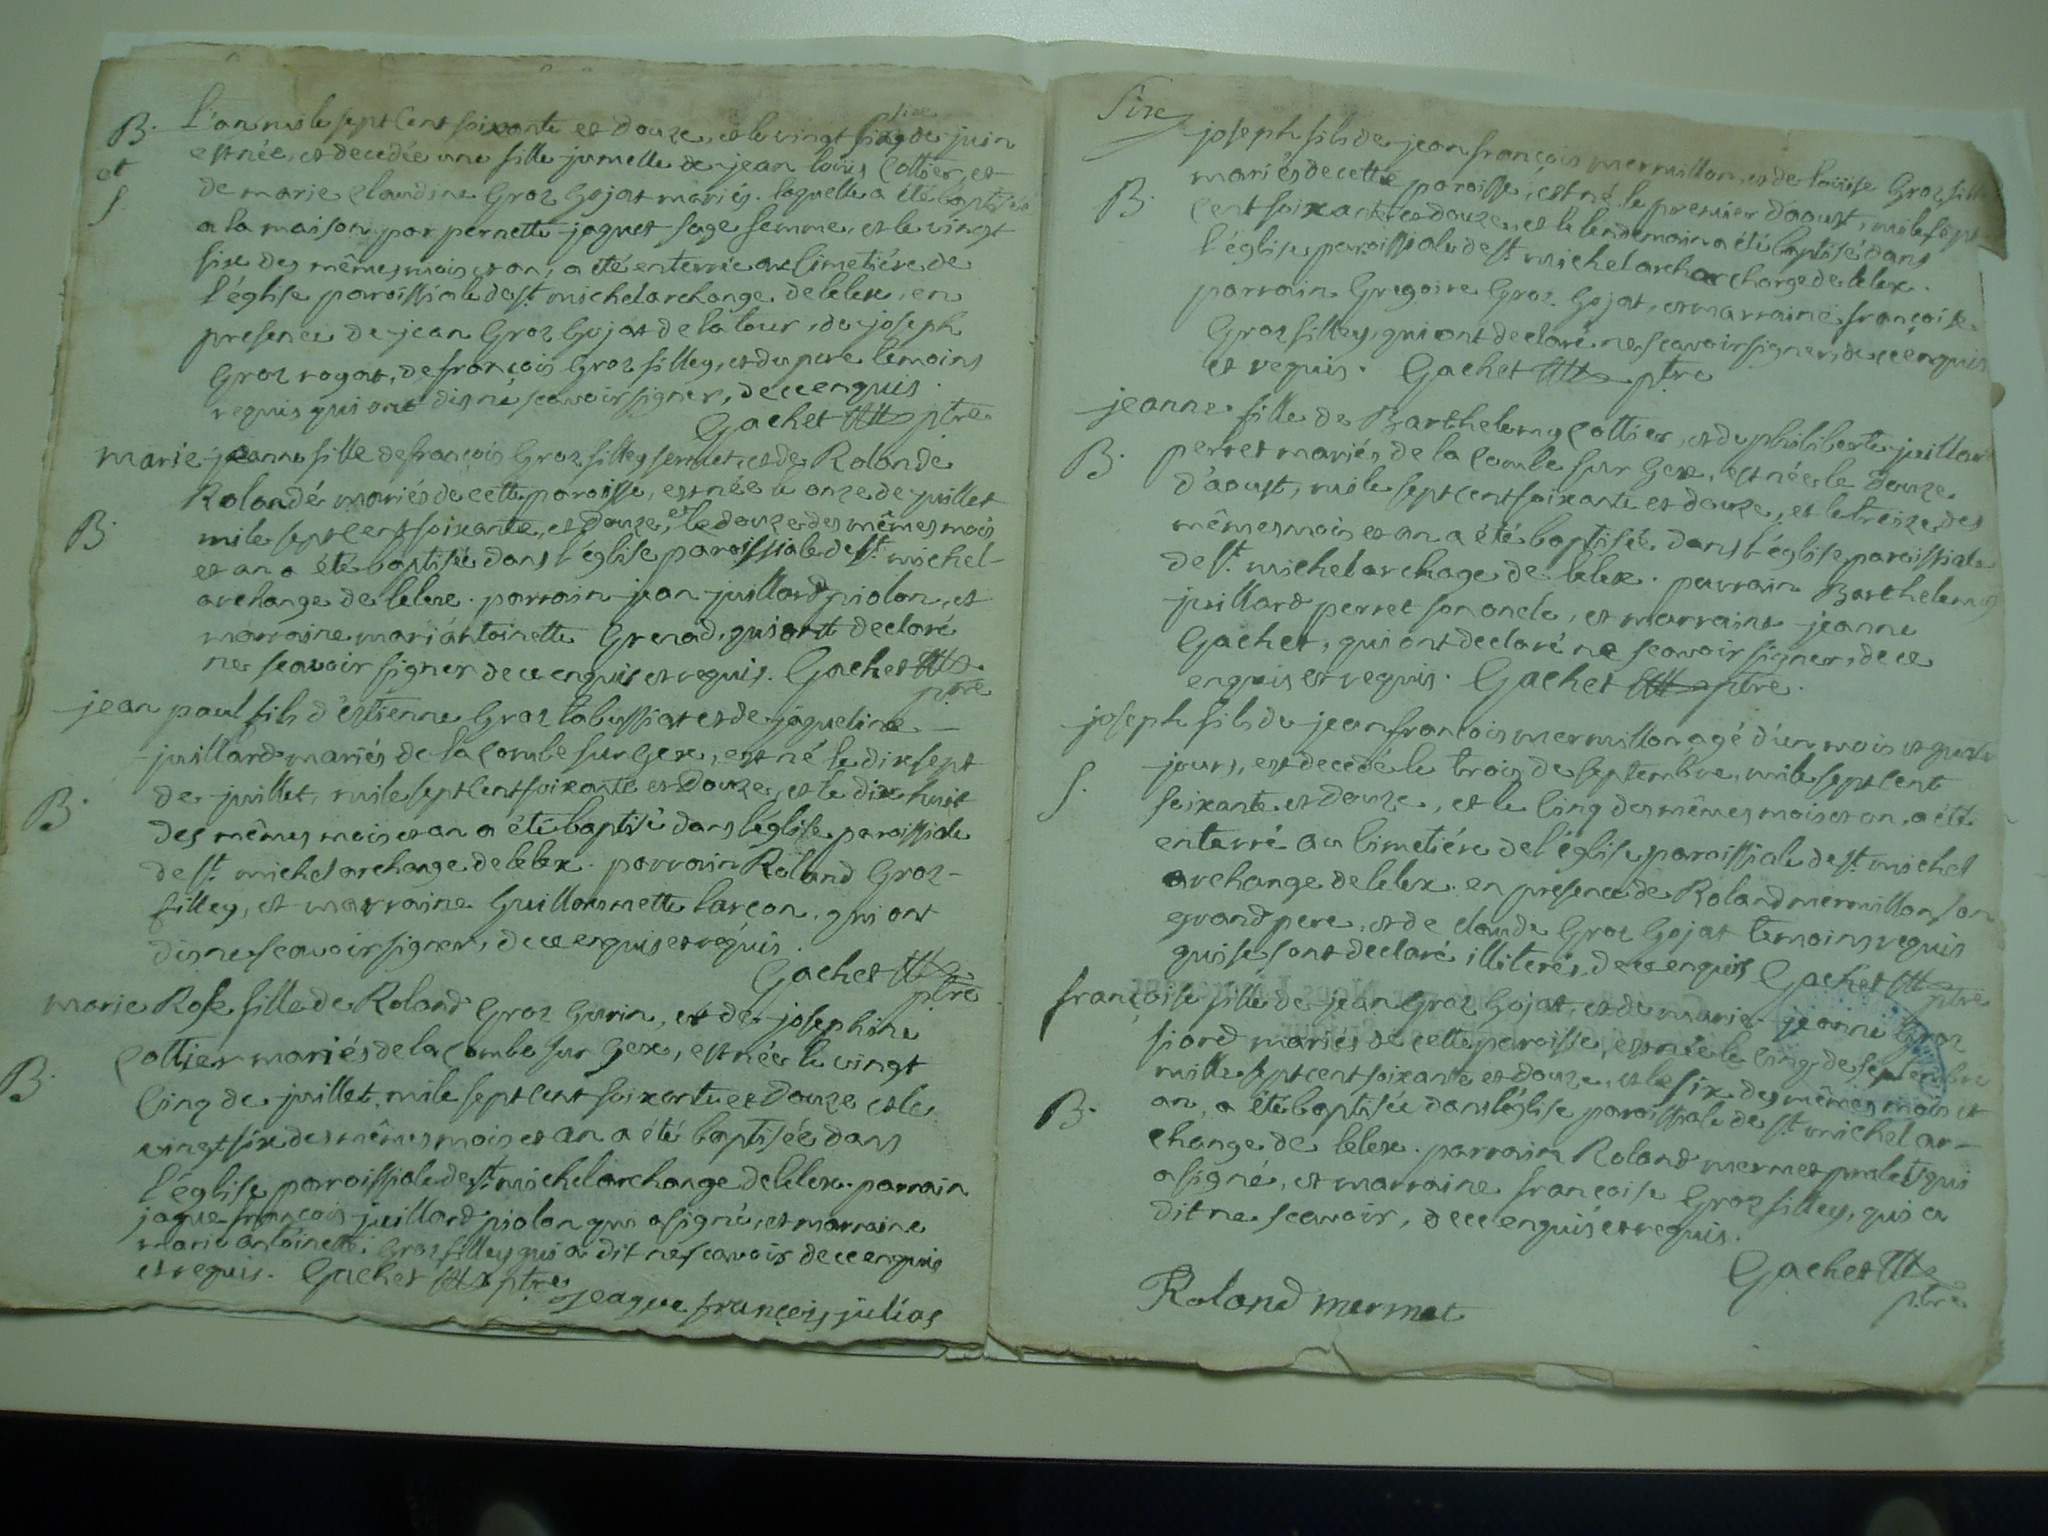 B. L'an mile sept cent soixante et douze, et le vingt six de juin
et est née, et decedée une fille jumelle de jean loüis Cottier, et
S. de marie Claudine Groz Gojat mariés. laquelle a été baptisée
a la maison par pernette jaquet sage femme, et le vingt
six des mêmes mois et an, a été enterrée au cimetiére de
l'église paroissiale de st. michel archange de lelex, en
presence de jean Groz Gojat de la tour, de joseph
Groz royat, de françois Groz filley, et du pere temoins
requis qui ont dis ne scavoir signer, de ce enquis.
Gachet ptre
marie jeanne fille de françois Groz filley et de Rolande
Rolandé mariés de cette paroisse, est née le onze de juillet
B. mile sept cent soixante, et douze, et le douze des mêmes mois
et an a été baptisée dans l'église paroissiale de st. michel-
archange de lelex. parrain jean juillard piolon, et
marraine mari antoinette Grenad, qui ont declaré
ne scavoir signer de ce enquis et requis. Gachet
ptre
jean paul fils d'estienne Groz tabussiat et de jaqueline
juillard mariés de la Combe sur Gex, est né le dix sept
de juillet, mile sept cent soixante et douze, et le dix huit
B. des mêmes mois et an a été baptisé dans l'église paroissiale
de st. michel archange de lelex. parrain Roland Groz-
filley, et marraine Guillaumette lançon, qui ont
dis ne scavoir signer, de ce enquis et requis.
Gachet
ptre
marie Rose fille de Roland Groz Gurin, et de josephine
Cottier mariés de la Combe sur Gex, est née le vingt
B. Cinq de juillet, mile sept cent soixante et douze et le
vingt six des mêmes mois et an a été baptisée dans
l'église paroissiale de st. michel archange de lelex. parrain
jaque françois juillard piolon qui a signé, et marraine
marie antoinette Groz filley qui a dit ne scavoir de ce enquis
et requis. Gachet ptre
jeaque françois julias
Six
joseph fils de jean françois mermillon, et de loüise Groz filley
mariés de cette paroisse, est né le premier d'aoust, mile sept
B. cent soixante et douze, et le lendemain a été baptisé dans
l'église paroissiale de st. michel archarchange de lelex.
parrain Gregoire Groz Gojat, et marraine françoise
Groz filley, qui ont declaré ne scavoir signer, de ce enquis
et requis. Gachet ptre
jeanne fille de Barthelemy Cottier, et de philiberte juillard
B. perret mariés de la Combe sur Gex, est née le douze
d'aoust, mile sept cent soixante et douze, et le treize des
mêmes mois et an a été baptisée dans l'église paroissiale
de st. michel archage de lelex. parrain Barthelemy
juillard perret son oncle, et marraine jeanne
Gachet, qui ont declaré ne scavoir signer, de ce
enquis et requis. Gachet ptre.
joseph fils de jean françois mermillon agé d'un mois et quatre
jours, est decedé le trois de septembre, mile sept cent
S. soixante et douze, et le Cinq des mêmes mois et an, a été
enterré au Cimetiére de l'église paroissiale de st. michel
archange de lelex. en presence de Roland mermillon son
grand pere, et de claude Groz Gojat temoins requis
qui se sont declaré illiterés, de ce enquis Gachet
ptre
françoise fille de jean Groz Gojat, et de marie jeanne Groz
fiord mariés de cette paroisse, est née le Cinq de septembre
mille sept cent soixante et douze, et le six des mêmes mois et
B. an, a été baptisée dans l'église paroissiale de st. michel ar-
change de lelex. parrain Roland mermet pralet qui
a signé, et marraine françoise Groz filley, qui a
dit ne scavoir, de ce enquis et requis.
Gachet
ptre
Roland mermet